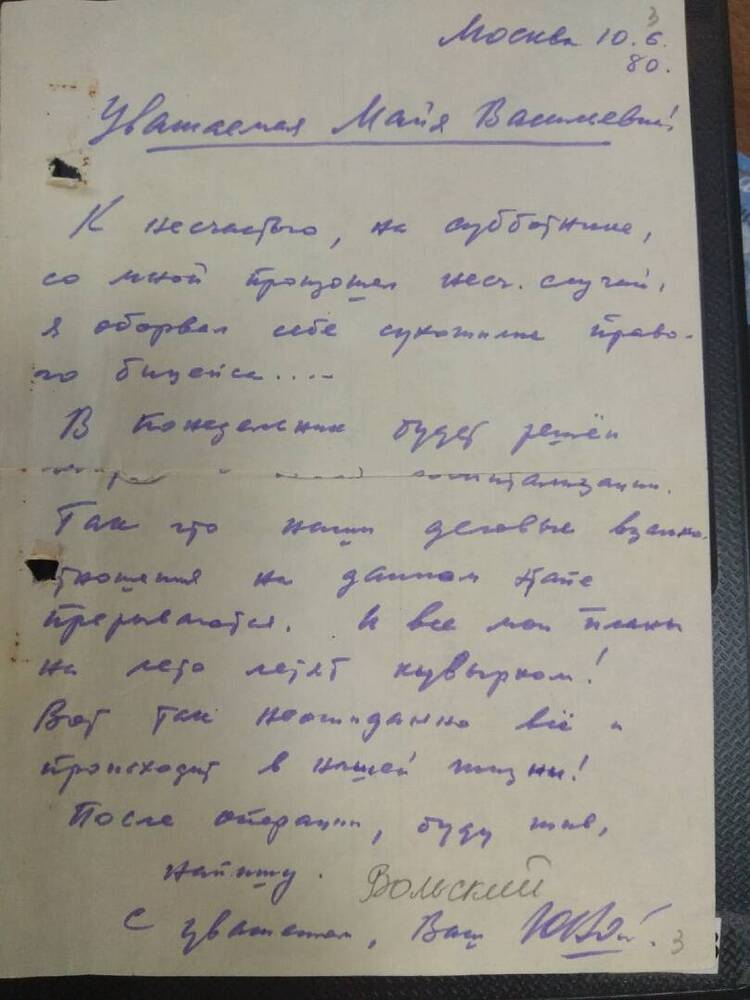 3
Москва 10.6.
80.
Уважаемая Майя Васильевна!
К несчастью, на субботнике,
со мной произошел несч. случай,
я оборвал себе сухожилие право-
го бицепса....
В понедельник будет решён
госпитализации.
Так что наши деловые взаимо-
отношения на данном этапе
прерываются. И все мои планы
на лето летят кувырком!
Вот так неожиданно всё и
происходит в нашей жизни!
После операции, буду жив,
напишу.
Вольский
С уважением, Ваш
3